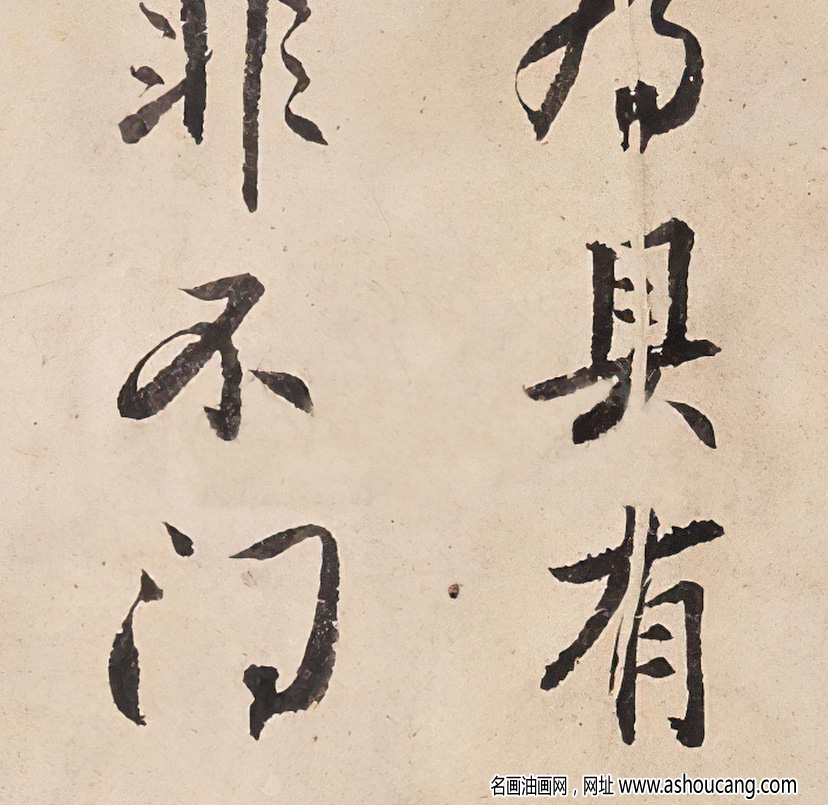 具有
非不门
名画油画网，网址 www.ashoucang.com